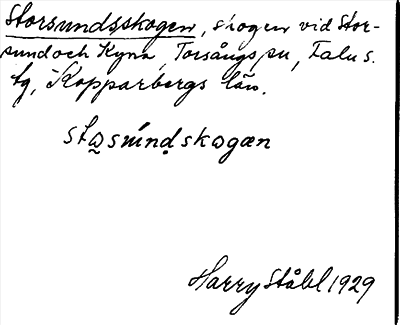 Storsundsskogen, skogen vid Stor-
sund och Kyna, Torsångs sn, Falu s.
tg, Kopparbergs län.
sto̰smńd̥skogæn
Harry Ståhl 1929